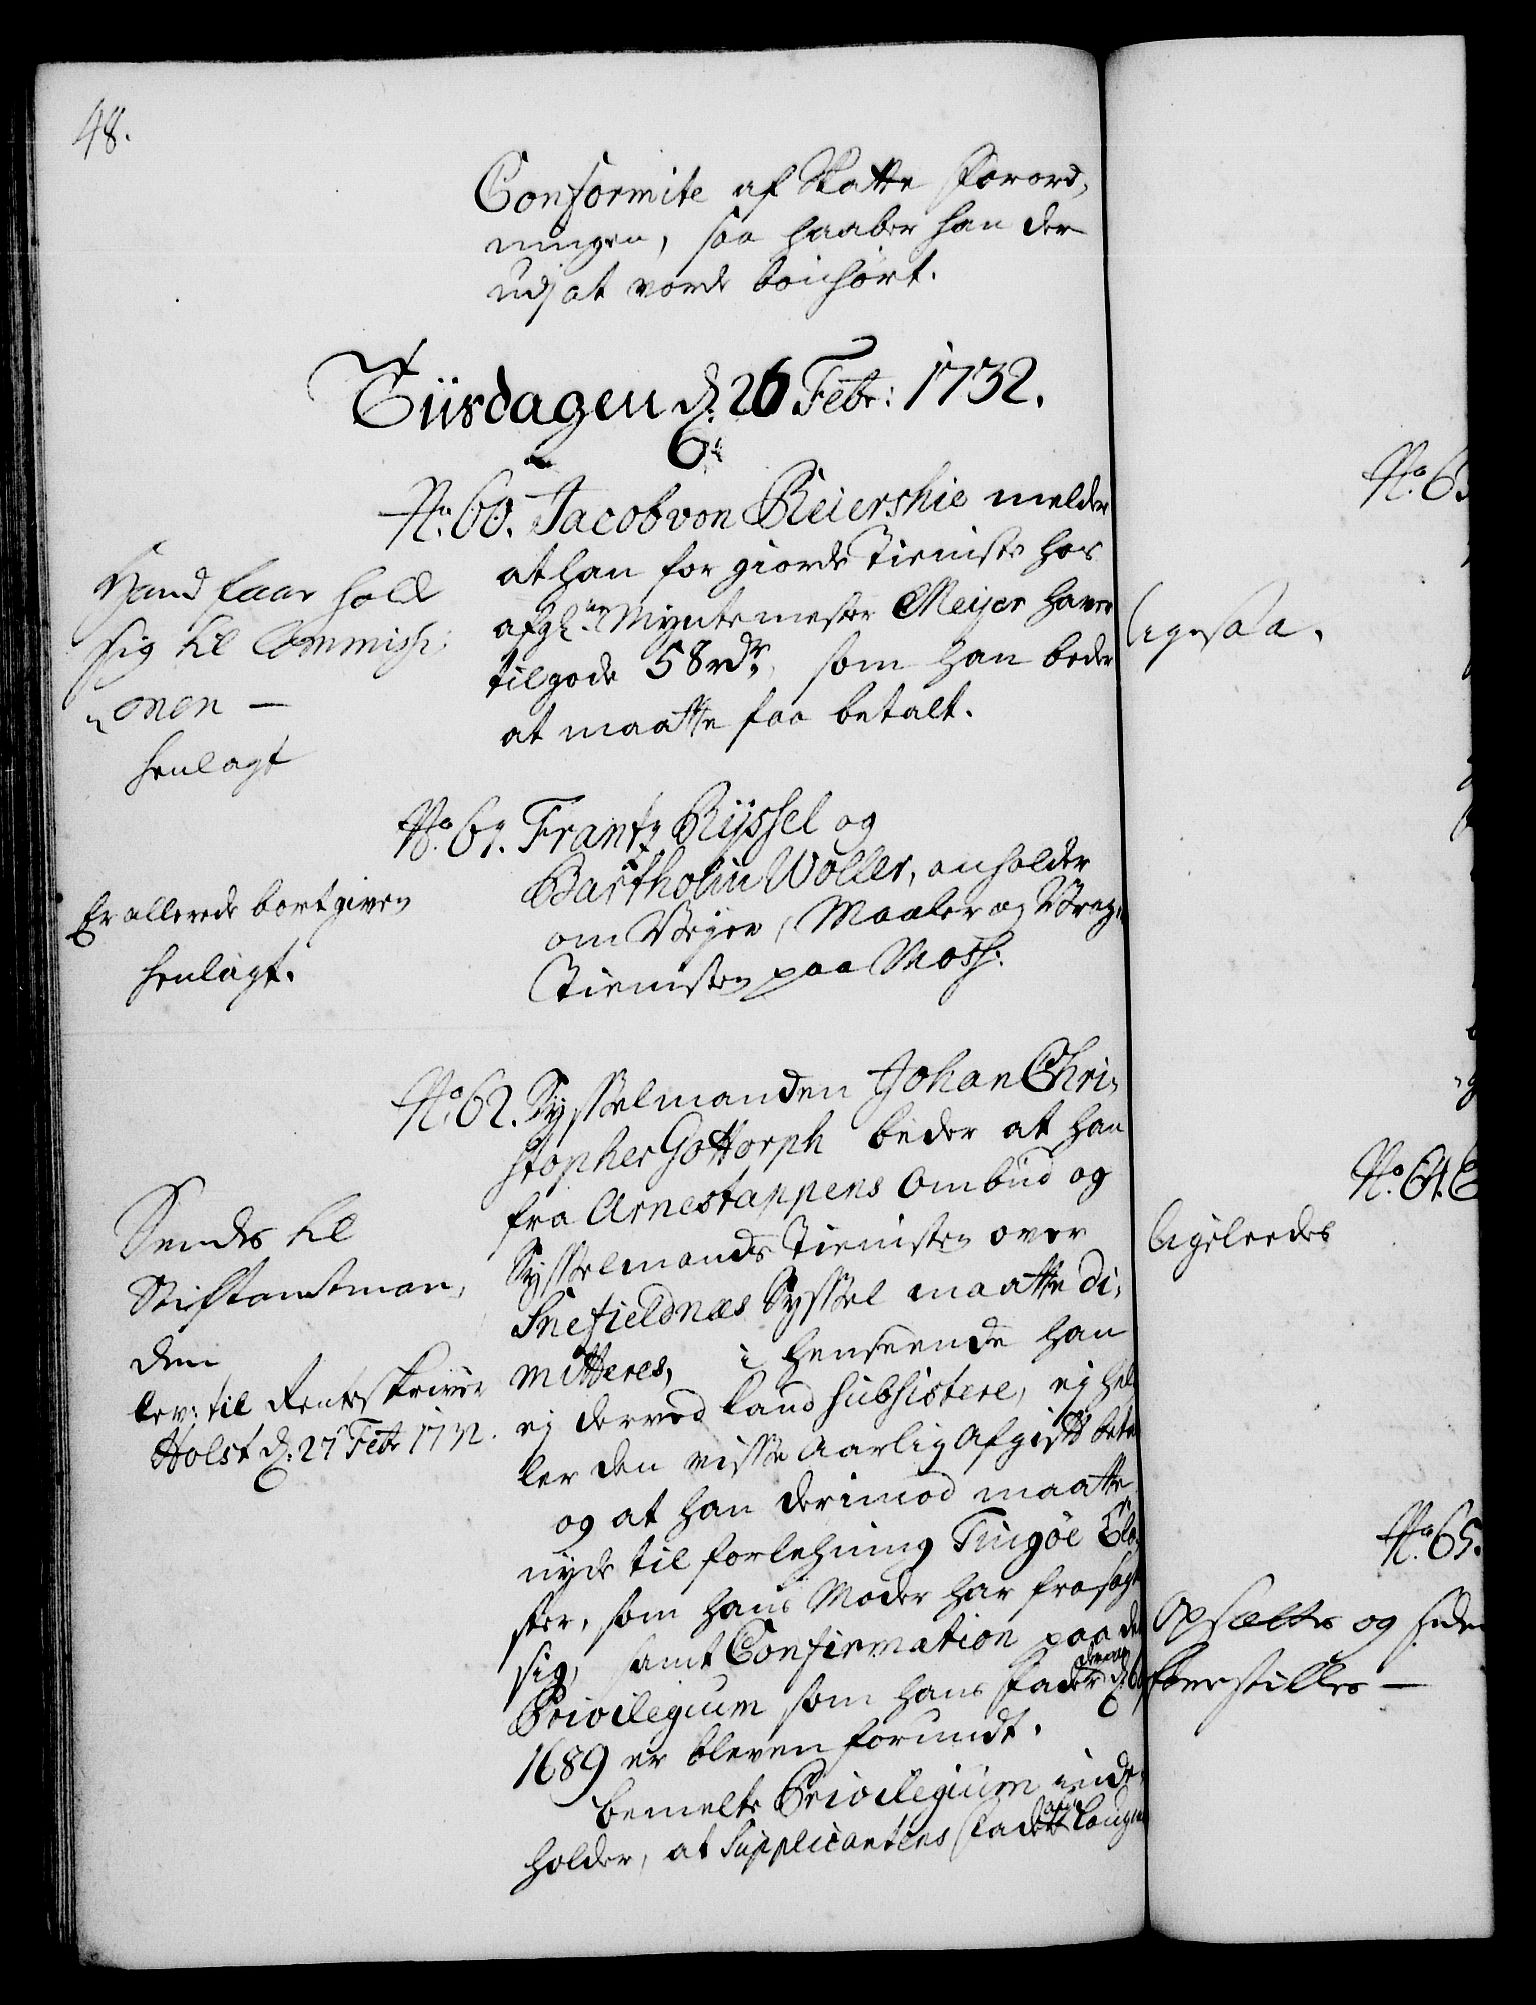 48.
Conformite af Skatte Forord,
ningen, saa haaber han der
udj at vorde bønhørt.
Tiisdagen d. 26 Febr: 1732.
No. 60. Jacob von Beierskie melder
at han for giorde Tieniste hos
afg: Myntemester Meijer haver
tilgode 58 rdr, som han beder
at maatte faa betalt.
Hand faar holde
sig til Commissi:
onen —
henlagt
No. 61. Frantz Rijssel og
Bartholin Woller, anholder
om Vejer, Maaler og Vrager
Tienisten paa Moss.
Er allerede bortgiven
henlagt.
No. 62. Sysselmanden Johan Chri,
stopher Gottorph beder at han
fra Arnestappens Ombud og
Sysselmands Tienisten over
Snefieldnæs Syssel maatte di,
mitteres, i henseende han
ej derved kand subsistere, ej hel
ler den visse aarlig Afgift beta
og at han derimod maatte
nyde til forlehning Tingøe Clo,
ster, som hans Moder har frasagt
sig, samt Confirmation paa det
Privilegium som hans Fader d.
1689 er bleven forundt.
bemelte Privilegium inde,
holder, at Supplicantens Fader
Sendes til
Stiftamtman,
den
lev: til Renteskriver
Holst d. 27 Febr 1732.
No. 63
ligesaa.
No. 64.
ligeleedes
No. 65.
Opsættes og siden
forestilles —